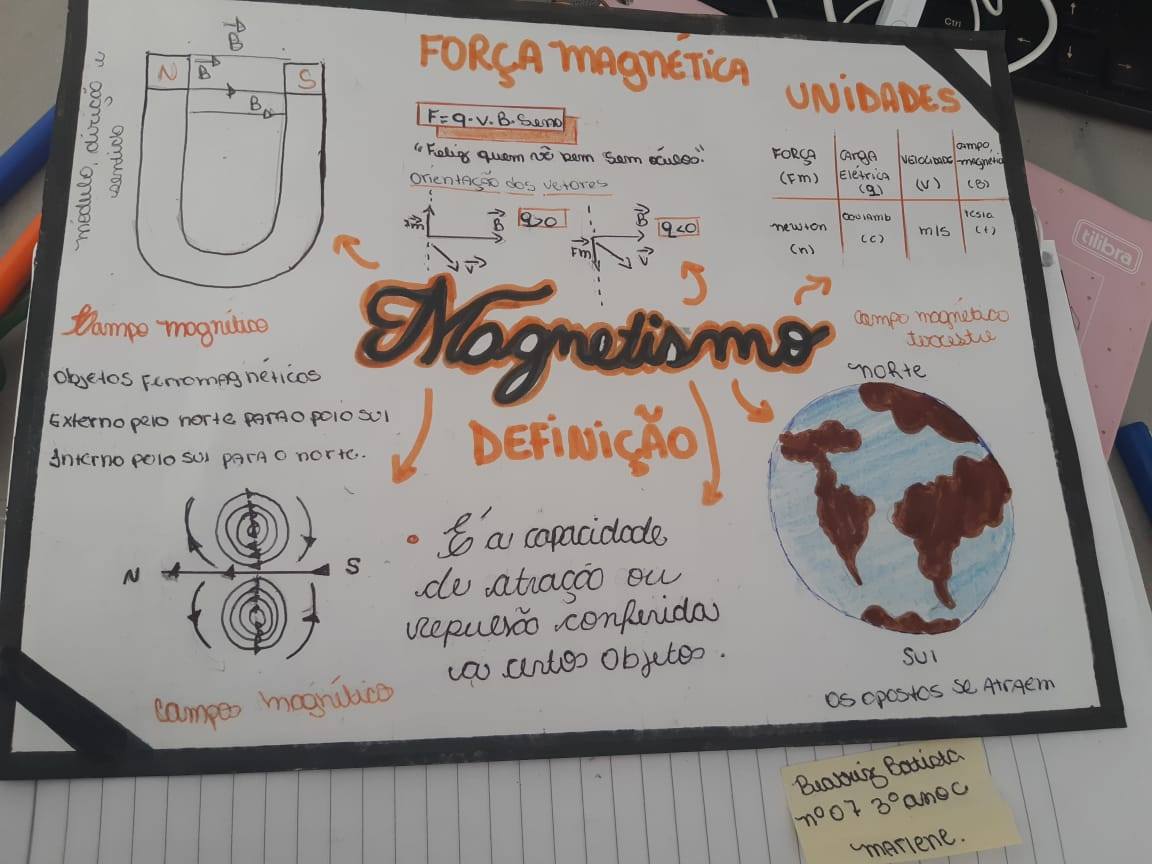 FORÇA MAGNÉTICA
F=q.v.B.Senθ
"Feliz quem vê bem sem óculos."
Orientação dos vetores
Fm
B
q>0
V
Fm
B
q<0
V
UNIDADES
FORÇA (Fm)
CARGA Elétrica (q)
VELOCIDADE (V)
campo magnético (B)
newton (n)
coulamb (c)
m/s
tesla (t)
módulo, direção e sentido
B
N
B
S
B
Campo magnético
objetos Ferromagnéticos
Externo pelo norte PARA O polo sul
Interno polo sul PARA O norte.
N
S
campo magnético
Magnetismo
DEFINIÇÃO
• É a capacidade
de atração ou
repulsão conferida
a certos objetos.
campo magnético
terrestre
norte
sul
os opostos se atraem
Beatriz Batista
nº 07 3º ano C
Marlene.
tilibra
Ctrl